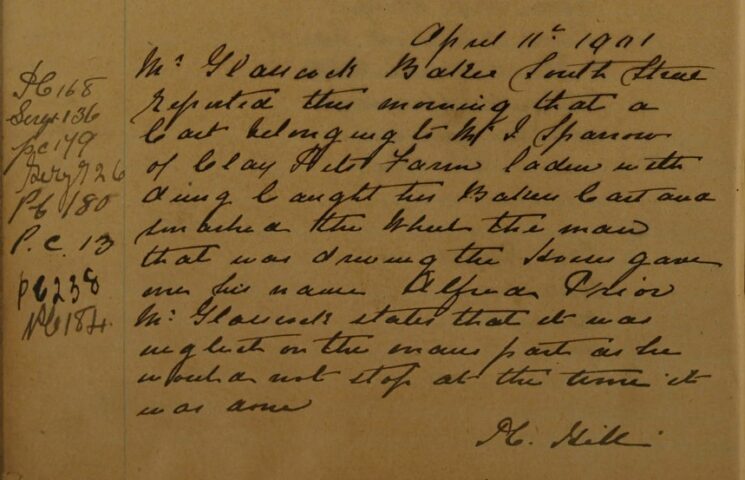 April 11th 1901
Mr Glasscock Baker South Street
reported this morning that a
Cart belonging to Mr J Sparrow
of Clay Pits Farm laden with
dung Caught his Bakers Cart and
smashed the Wheel the man
that was driving the Horses gave
me his name Alfred Prior
Mr Glasscock states that it was
neglect on the mans part as he
would not stop at the time it
was done
PC. Hill
PC 168
Sergt 136
pc 179
Sergt 26
PC 180
P.C. 13
PC 238
PC 184